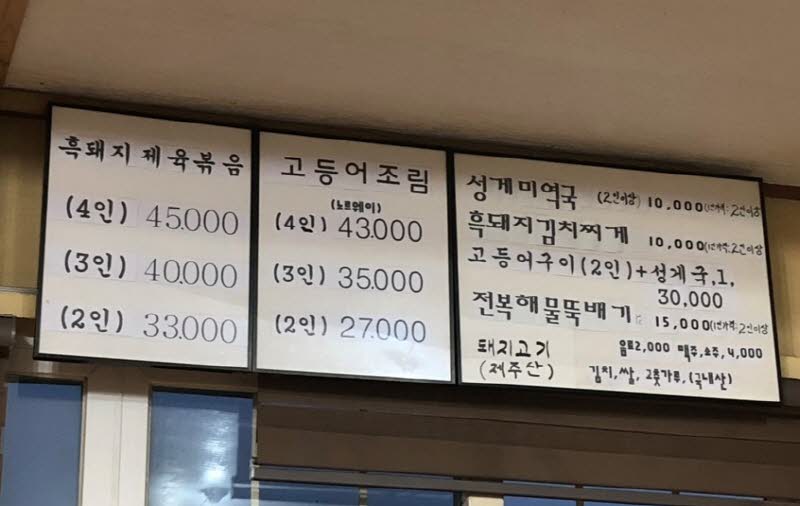 흑돼지제육볶음
(4인) 45.000
(3인) 40.000
(2인) 33.000
고등어조림
(노르웨이)
(4인) 43.000
(3인) 35.000
(2인) 27.000
성게미역국 (2인이상) 10,000(1인가격:2인이상
흑돼지김치찌게 10,000(1인가격:2인이상
고등어구이(2인)+성게국,1,
30,000
전복해물뚝배기 15,000(1인가격:2인이상
돼지고기 음료2,000 맥주,소주,4,000
(제주산) 김치,쌀,고춧가루,(국내산)